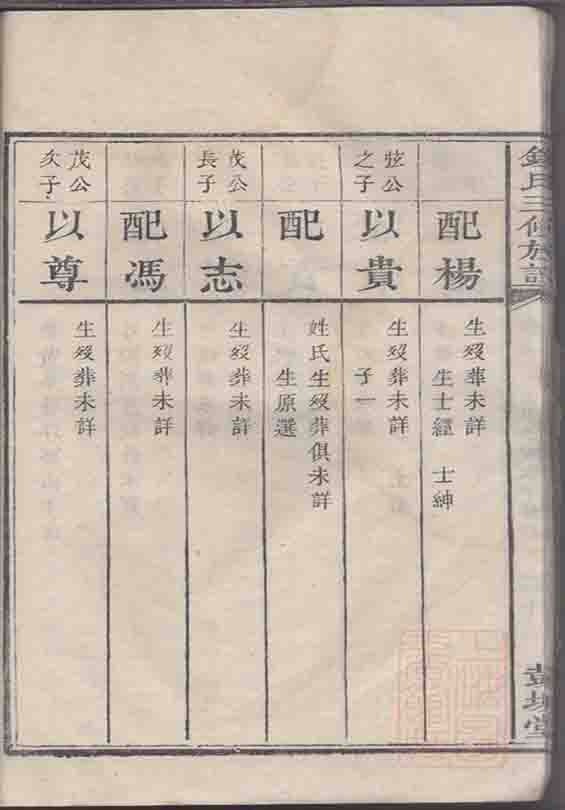 錢氏三修族譜
彭城堂
配楊
生歿葬未詳
生士經 士紳
弦公
之子
以貴
生歿葬未詳
子一
配
姓氏生歿葬俱未詳
生原選
茂公
長子
以志
生歿葬未詳
配馮
生歿葬未詳
茂公
次子
以尊
生歿葬未詳